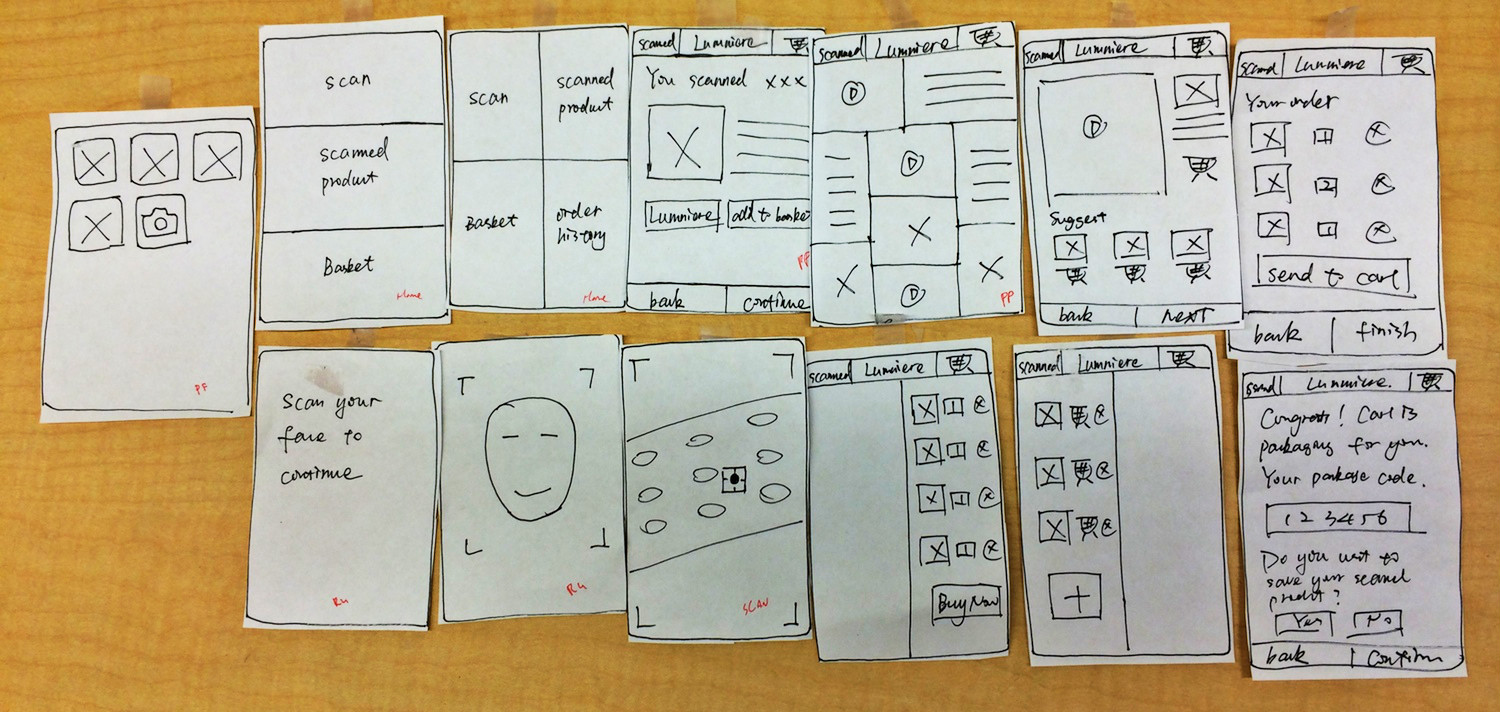 PF
scan
scanned
product
Basket
Home
scan
scanned
product
Basket
order
history
Home
scanned
Lumniere
You scanned xxx
Lumniere
add to basket
PF
back
continue
scanned
Lumniere
D
D
D
PP
scanned
Lumniere
D
Suggest
back
next
scanned
Lumniere
Your order
1
2
1
send to carl
back
finish
Scan your
face to
continue
RU
RU
SCAN
scanned
Lumniere
1
1
1
1
Buy Now
scanned
Lumniere
+
Lumniere
Congrats! Carl is
packaging for you.
Your package code.
123456
Do you want to
save your scanned
product?
Yes
No
back
Confirm